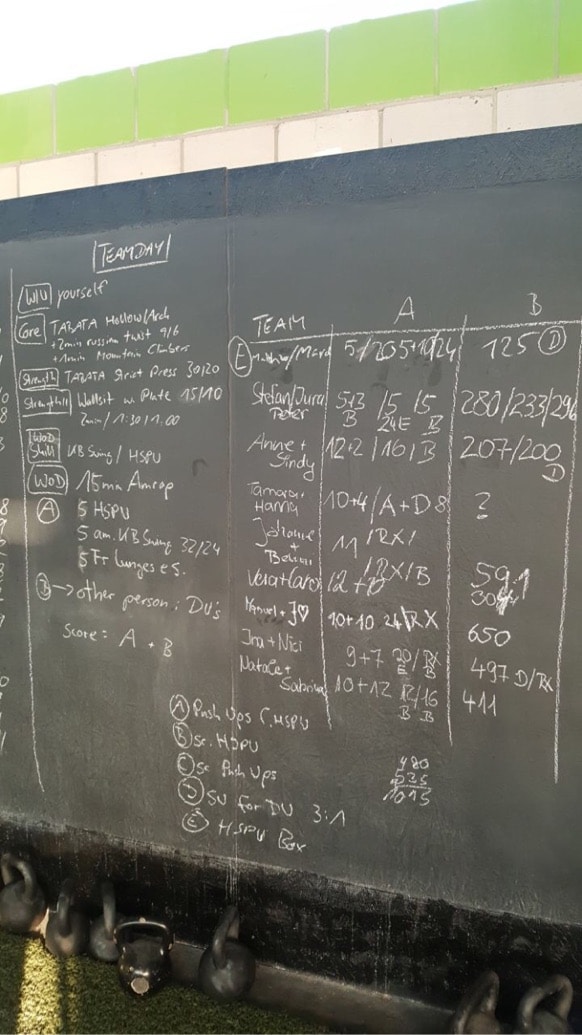 TEAMDAY
W/U yourself
Core TABATA Hollow/Arch
+2min russian twist 9/6
+1min Mountain Climbers
Strength TABATA Strict Press 30/20
Strength II Wallsit w. Plate 15/10
2min / 1:30 / 1:00
WOD Skill KB Swing / HSPU
WOD 15min Amrap
A 5 HSPU
5 am. KB Swing 32/24
5 Fr Lunges es.
B → other person: DU's
Score: A + B
TEAM A B
E 125 D
Stefan/ Peter 280/233/296
Anne + Sindy 12+2 /16/ B 207/200 D
Tamara + Hanna 10+4/A+D 8 ?
Johanne + 11 /RX/
Vera+Caro 12+10 /RX/B
Manuel + J♡ 10+10 24/RX 650
Ina+Nici 9+7 20/RX E B 497 D/RX
Natalie + Sabrina 10+12 12/16 B B 411
A Push Ups f. HSPU
B Sc. HSPU
C Sc Push Ups
D SU for DU 3:1
E HSPU Box
480
535
1015